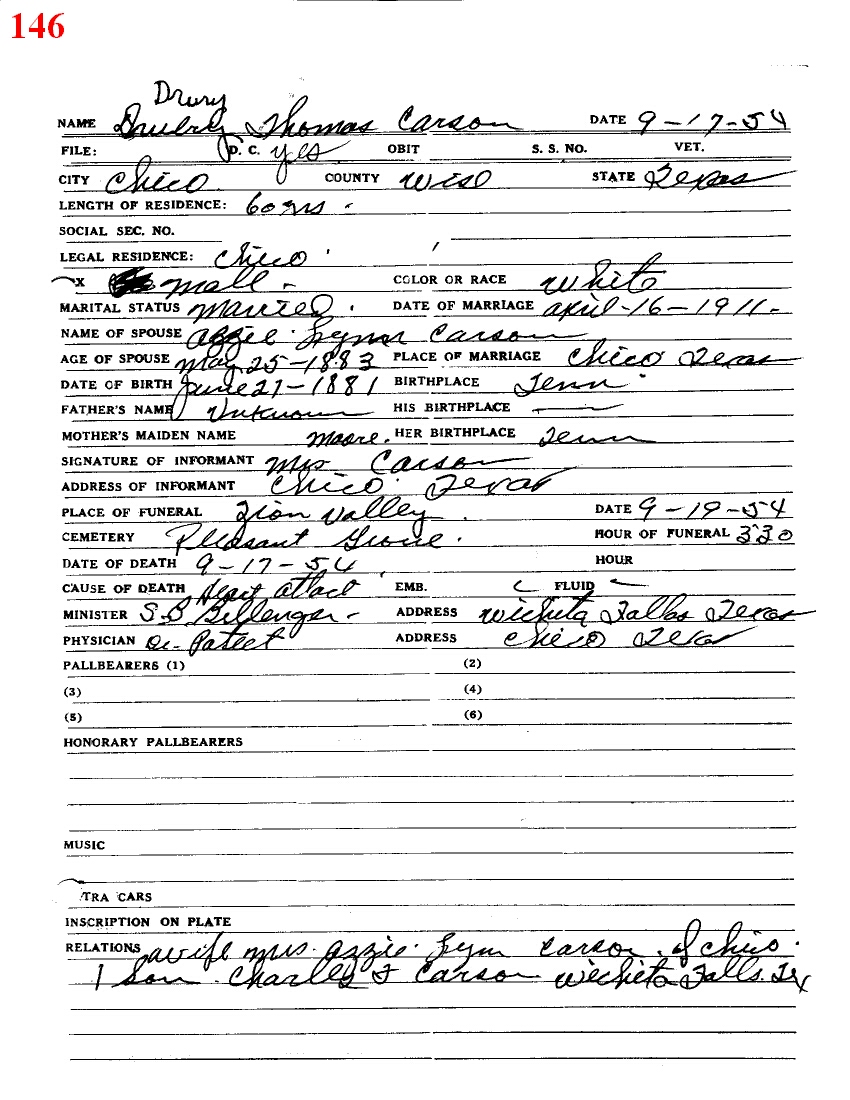 146
Drury
NAME Thomas Carson DATE 9-17-54
FILE: D. C. yes OBIT S. S. NO. VET.
CITY Chico COUNTY Wise STATE Texas
LENGTH OF RESIDENCE: 60 yrs.
SOCIAL SEC. NO.
LEGAL RESIDENCE: Chico
X male - COLOR OR RACE White
MARITAL STATUS Married. DATE OF MARRIAGE April-16-1911-
NAME OF SPOUSE Azzie Lynn Carson
AGE OF SPOUSE may 25-1883 PLACE OF MARRIAGE Chico Texas
DATE OF BIRTH June 21-1881 BIRTHPLACE Tenn.
FATHER'S NAME Unknown HIS BIRTHPLACE —
MOTHER'S MAIDEN NAME moore. HER BIRTHPLACE Tenn
SIGNATURE OF INFORMANT Mrs Carson
ADDRESS OF INFORMANT Chico Texas
PLACE OF FUNERAL Zion Valley. DATE 9-19-54
CEMETERY Pleasant Grove. HOUR OF FUNERAL 330
DATE OF DEATH 9-17-54 HOUR
CAUSE OF DEATH Heart attact EMB. FLUID —
MINISTER S.B Billenger- ADDRESS Wichita Falls Texas
PHYSICIAN Dr. Pateet ADDRESS Chico Texas
PALLBEARERS (1) (2)
(3) (4)
(5) (6)
HONORARY PALLBEARERS
MUSIC
TRA CARS
INSCRIPTION ON PLATE
RELATIONS wife mrs. Azzie Lynn Carson. of Chico.
1 Son Charley F Carson Wichita Falls. Tex